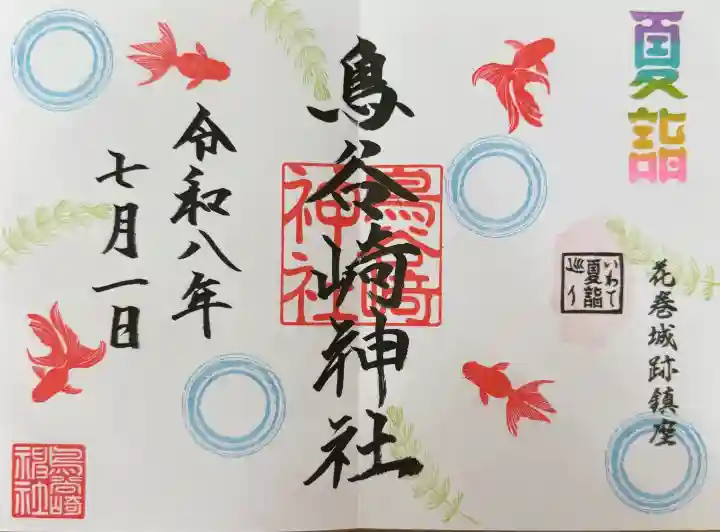 夏詣
花巻城跡鎮座
いわて
夏詣
巡り
鳥谷崎神社
鳥谷崎
神社
令和八年
七月一日
鳥谷崎
神社